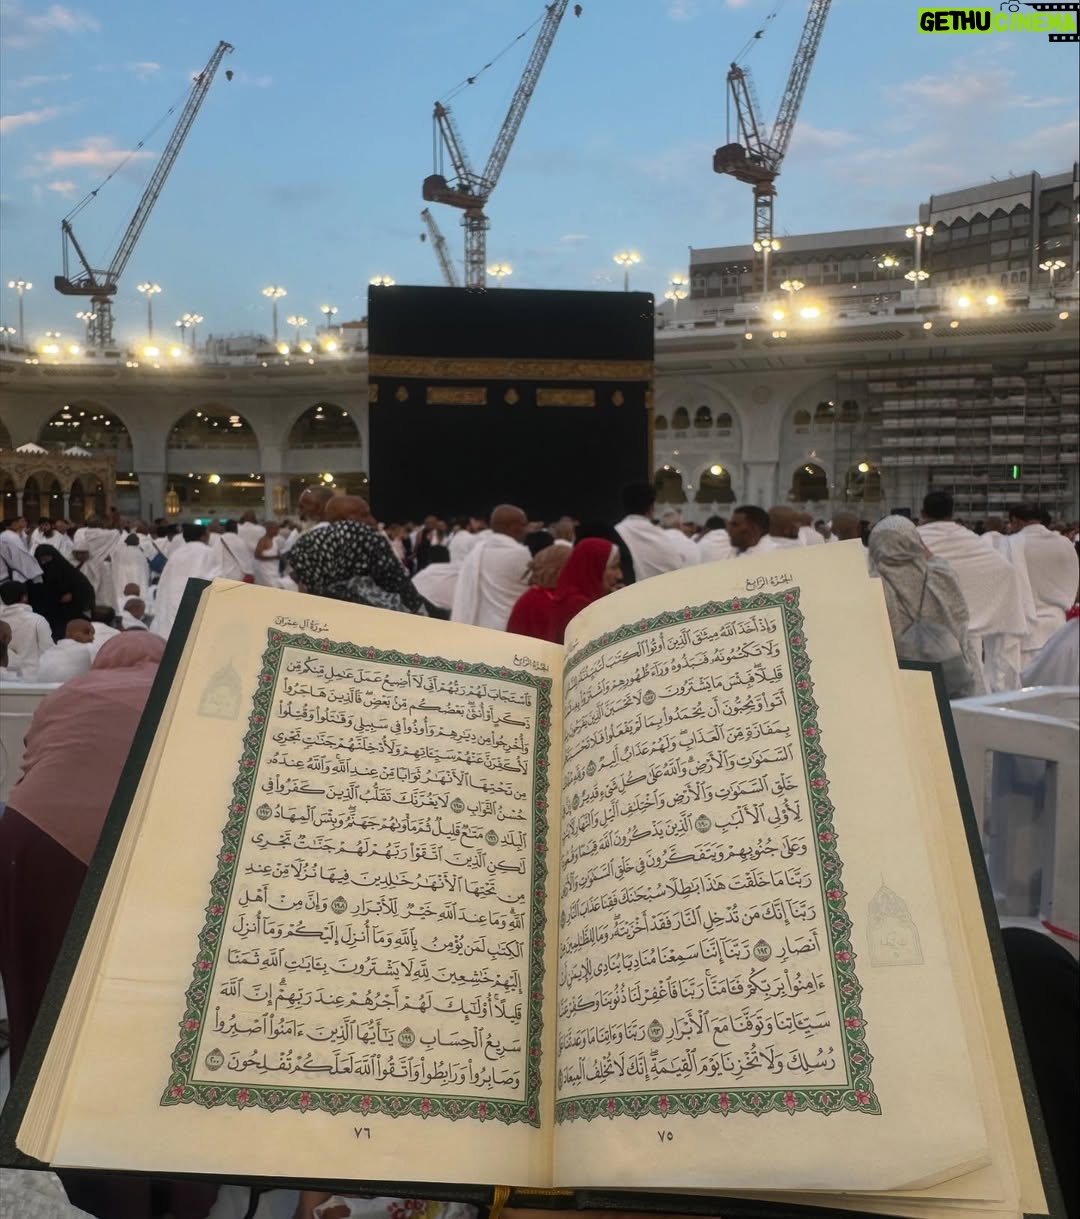 الجُزْءُ الرَّابِعُ
وَإِذْ أَخَذَ ٱللَّهُ مِيثَٰقَ ٱلَّذِينَ أُوتُوا۟ ٱلْكِتَٰبَ
وَلَا تَكْتُمُونَهُۥ فَنَبَذُوهُ وَرَآءَ ظُهُورِهِمْ وَٱشْتَرَوْا۟
قَلِيلًا ۖ فَبِئْسَ مَا يَشْتَرُونَ ١٨٧ لَا تَحْسَبَنَّ ٱلَّذِينَ
أَتَوا۟ وَّيُحِبُّونَ أَن يُحْمَدُوا۟ بِمَا لَمْ يَفْعَلُوا۟ فَلَا
بِمَفَازَةٍ مِّنَ ٱلْعَذَابِ ۖ وَلَهُمْ عَذَابٌ أَلِيمٌ ١٨٨
ٱلسَّمَٰوَٰتِ وَٱلْأَرْضِ ۗ وَٱللَّهُ عَلَىٰ كُلِّ شَىْءٍ قَدِيرٌ ١٨٩
خَلْقِ ٱلسَّمَٰوَٰتِ وَٱلْأَرْضِ وَٱخْتِلَٰفِ ٱلَّيْلِ وَٱلنَّهَارِ
لِّأُو۟لِى ٱلْأَلْبَٰبِ ١٩٠ ٱلَّذِينَ يَذْكُرُونَ ٱللَّهَ قِيَٰمًا
وَعَلَىٰ جُنُوبِهِمْ وَيَتَفَكَّرُونَ فِى خَلْقِ ٱلسَّمَٰوَٰتِ وَٱلْأَرْضِ
رَبَّنَا مَا خَلَقْتَ هَٰذَا بَٰطِلًا سُبْحَٰنَكَ فَقِنَا عَذَابَ ٱلنَّارِ
رَبَّنَآ إِنَّكَ مَن تُدْخِلِ ٱلنَّارَ فَقَدْ أَخْزَيْتَهُۥ ۖ وَمَا لِلظَّٰلِمِينَ مِنْ
أَنصَارٍ ١٩٢ رَّبَّنَآ إِنَّنَا سَمِعْنَا مُنَادِيًا يُنَادِى لِلْإِيمَٰنِ أَنْ
ءَامِنُوا۟ بِرَبِّكُمْ فَـَٔامَنَّا ۚ رَبَّنَا فَٱغْفِرْ لَنَا ذُنُوبَنَا وَكَفِّرْ عَنَّا
سَيِّـَٔاتِنَا وَتَوَفَّنَا مَعَ ٱلْأَبْرَارِ ١٩٣ رَبَّنَا وَءَاتِنَا مَا وَعَدتَّنَا عَلَىٰ
رُسُلِكَ وَلَا تُخْزِنَا يَوْمَ ٱلْقِيَٰمَةِ ۗ إِنَّكَ لَا تُخْلِفُ ٱلْمِيعَادَ
٧٥
الجُزْءُ الرَّابِعُ
سُورَةُ آلِ عِمْرَانَ
فَٱسْتَجَابَ لَهُمْ رَبُّهُمْ أَنِّى لَآ أُضِيعُ عَمَلَ عَٰمِلٍ مِّنكُم مِّن
ذَكَرٍ أَوْ أُنثَىٰ ۖ بَعْضُكُم مِّنۢ بَعْضٍ ۖ فَٱلَّذِينَ هَاجَرُوا۟
وَأُخْرِجُوا۟ مِن دِيَٰرِهِمْ وَأُوذُوا۟ فِى سَبِيلِى وَقَٰتَلُوا۟ وَقُتِلُوا۟
لَأُكَفِّرَنَّ عَنْهُمْ سَيِّـَٔاتِهِمْ وَلَأُدْخِلَنَّهُمْ جَنَّٰتٍ تَجْرِى
مِن تَحْتِهَا ٱلْأَنْهَٰرُ ثَوَابًا مِّنْ عِندِ ٱللَّهِ ۗ وَٱللَّهُ عِندَهُۥ
حُسْنُ ٱلثَّوَابِ ١٩٥ لَا يَغُرَّنَّكَ تَقَلُّبُ ٱلَّذِينَ كَفَرُوا۟ فِى
ٱلْبِلَٰدِ ١٩٦ مَتَٰعٌ قَلِيلٌ ثُمَّ مَأْوَىٰهُمْ جَهَنَّمُ ۚ وَبِئْسَ ٱلْمِهَادُ ١٩٧
لَٰكِنِ ٱلَّذِينَ ٱتَّقَوْا۟ رَبَّهُمْ لَهُمْ جَنَّٰتٌ تَجْرِى
مِن تَحْتِهَا ٱلْأَنْهَٰرُ خَٰلِدِينَ فِيهَا نُزُلًا مِّنْ عِندِ
ٱللَّهِ ۗ وَمَا عِندَ ٱللَّهِ خَيْرٌ لِّلْأَبْرَارِ ١٩٨ وَإِنَّ مِنْ أَهْلِ
ٱلْكِتَٰبِ لَمَن يُؤْمِنُ بِٱللَّهِ وَمَآ أُنزِلَ إِلَيْكُمْ وَمَآ أُنزِلَ
إِلَيْهِمْ خَٰشِعِينَ لِلَّهِ لَا يَشْتَرُونَ بِـَٔايَٰتِ ٱللَّهِ ثَمَنًا
قَلِيلًا ۗ أُو۟لَٰٓئِكَ لَهُمْ أَجْرُهُمْ عِندَ رَبِّهِمْ ۗ إِنَّ ٱللَّهَ
سَرِيعُ ٱلْحِسَابِ ١٩٩ يَٰٓأَيُّهَا ٱلَّذِينَ ءَامَنُوا۟ ٱصْبِرُوا۟
وَصَابِرُوا۟ وَرَابِطُوا۟ وَٱتَّقُوا۟ ٱللَّهَ لَعَلَّكُمْ تُفْلِحُونَ ٢٠٠
٧٦
GETHUCINEMA